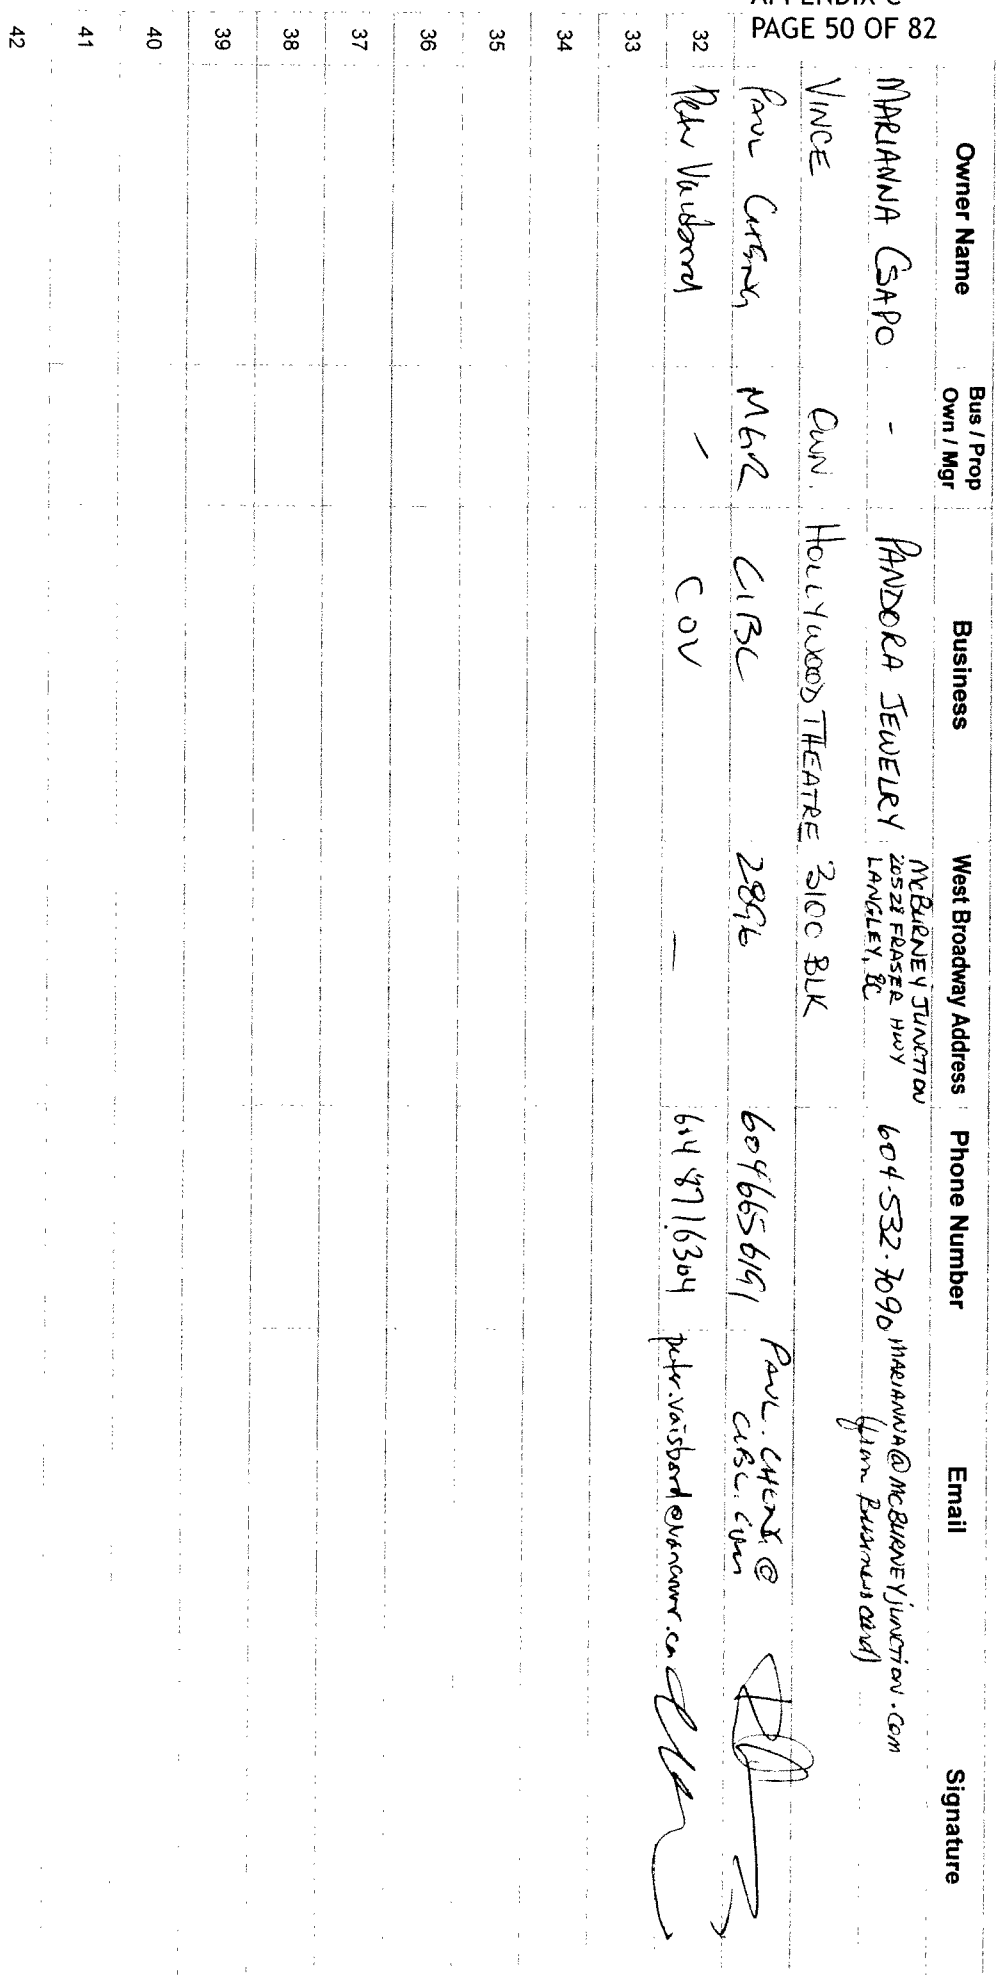 PAGE 50 OF 82
Owner Name Bus / Prop Own / Mgr Business West Broadway Address Phone Number Email Signature
MARIANNA CSAPO - PANDORA JEWELRY McBURNEY JUNCTION 20528 FRASER HWY LANGLEY, BC 604-532-7090 MARIANNA@McBURNEYjUNCTION.COM (from Business card)
VINCE OWN. HOLLYWOOD THEATRE 3100 BLK
PAUL CHENG MGR CIBC 2896 6046656191 PAUL.CHENG@CIBC.COM
32 Peter Vaisbord - COV - 6048716304 peter.vaisbord@vancouver.ca
33
34
35
36
37
38
39
40
41
42